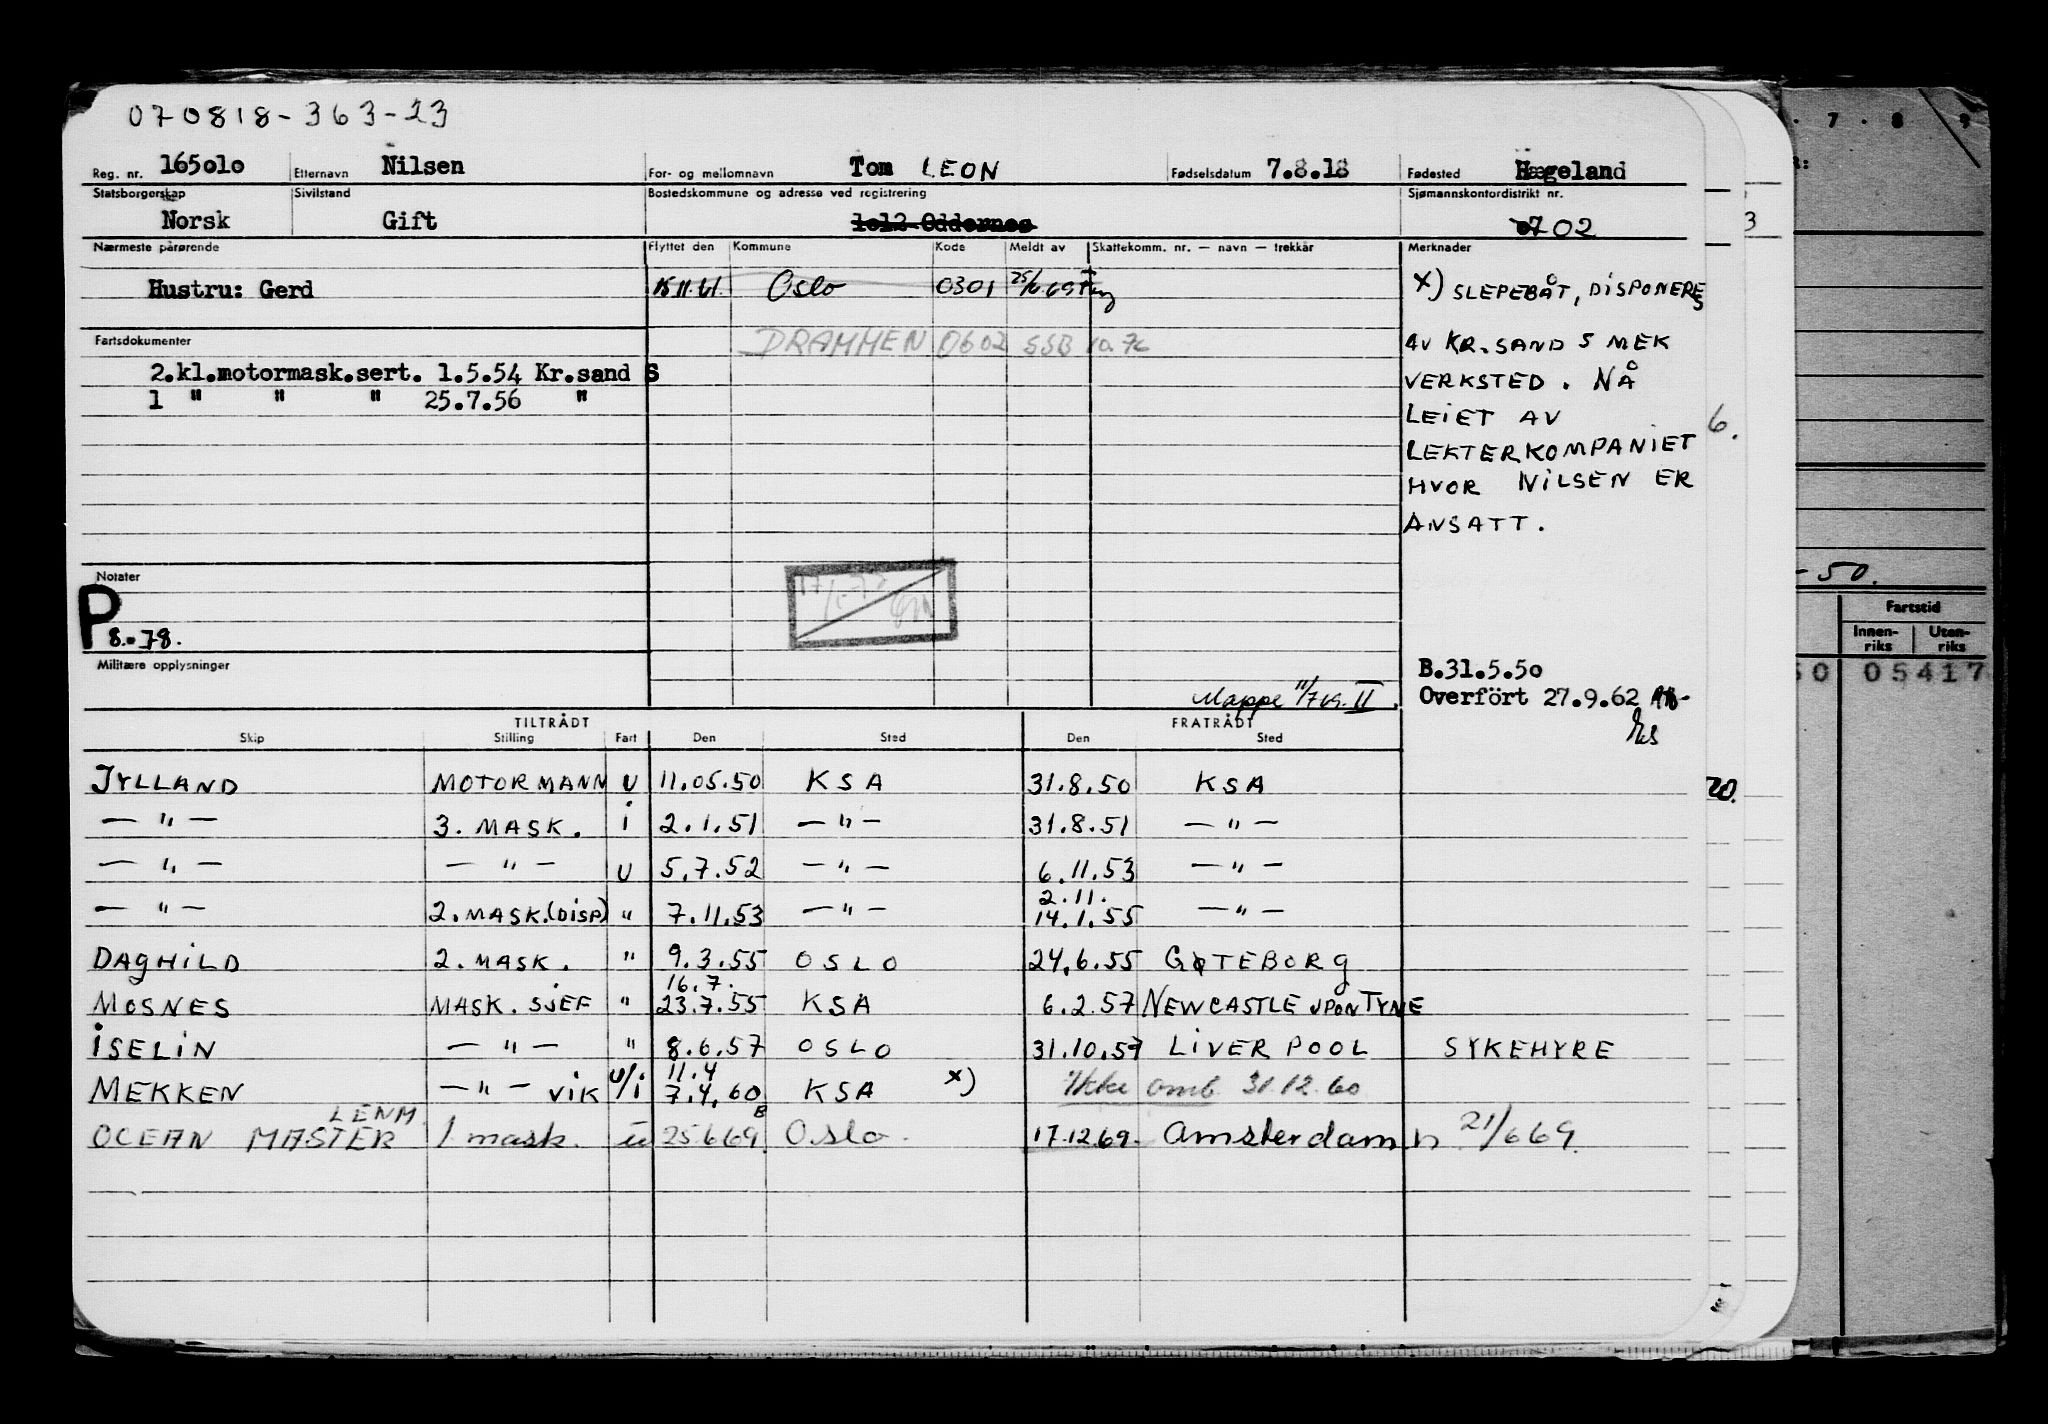 070818-363-23
Reg. nr. 165010 Etternavn Nilsen For- og mellomnavn Tom LEON Fødselsdatum 7.8.18 Fødested Hægeland
Statsborgerskap Sivilstand Bostedskommune og adresse ved registrering Sjømannskontordistrikt nr.
Norsk Gift 1012 Oddernes 02
Nærmeste pårørende Flyttet den Kommune Kode Meldt av Skattekomm. nr. — navn — trekkår Merknader
Hustru: Gerd 15.11.61. Oslo 0301 25/6.69 x) SLEPEBÅT, DISPONERES
DRAMMEN 0602 SSB 10.76 AV KR.SAND S MEK
Fartsdokumenter
2.kl.motormask.sert. 1.5.54 Kr.sand S VERKSTED. NÅ
1 " " " 25.7.56 " LEIET AV
6.
LEKTERKOMPANIET
HVOR NILSEN ER
ANSATT.
Notater
P 8.-78.
Militære opplysninger
B.31.5.50
Mappe 11/7 69. II. Overfört 27.9.62
TILTRÅDT FRATRÅDT
Skip Stilling Fart Den Sted Den Sted
JYLLAND MOTORMANN U 11.05.50 KSA 31.8.50 KSA
— " — 3. MASK. i 2.1.51 — " — 31.8.51 — " —
— " — — " — U 5.7.52 — " — 6.11.53 — " —
2.11.
— " — 2.MASK.(DISP) " 7.11.53 — " — 14.1.55 — " —
DAGHILD 2. MASK. " 9.3.55 OSLO 24.6.55 GØTEBORG
16.7.
MOSNES MASK. SJEF " 23.7.55 KSA 6.2.57 NEWCASTLE UPON TYNE
ISELIN — " — " 8.6.57 OSLO 31.10.57 LIVERPOOL SYKEHYRE
11.4
MEKKEN — " — VIK U/i 7.4.60 KSA x) Ikke omb. 31.12.60
LENM. B
OCEAN MASTER 1 mask. u 25669 Oslo. 17.12.69. Amsterdam n 21/6 69.
3
20.
7 . 8 9
-50.
Fartstid
Innen-riks Uten-riks
50 05417